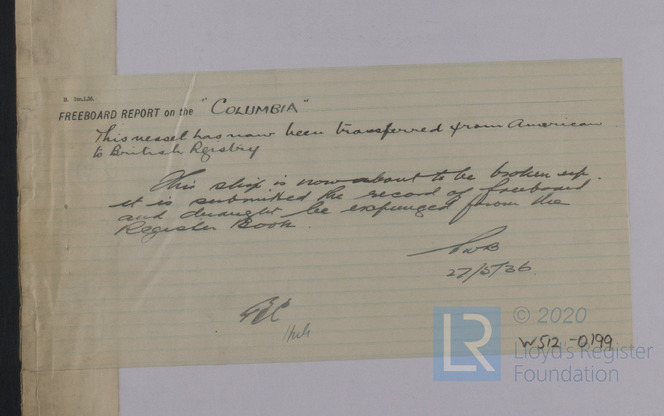 FREEBOARD REPORT on the "COLUMBIA"
This vessel has now been transferred from American
to British Registry
This ship is now about to be broken up.
it is submitted the record of freeboard
and draught be expunged from the
Register Book.
27/5/36.
LR
© 2020
Lloyd's Register
Foundation
W512-0199